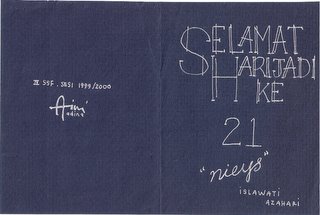 III SSF. SESI 1999/2000
Aini
adina
SELAMAT
HARIJADI
KE
21
"nieys"
ISLAWATI
AZAHARI